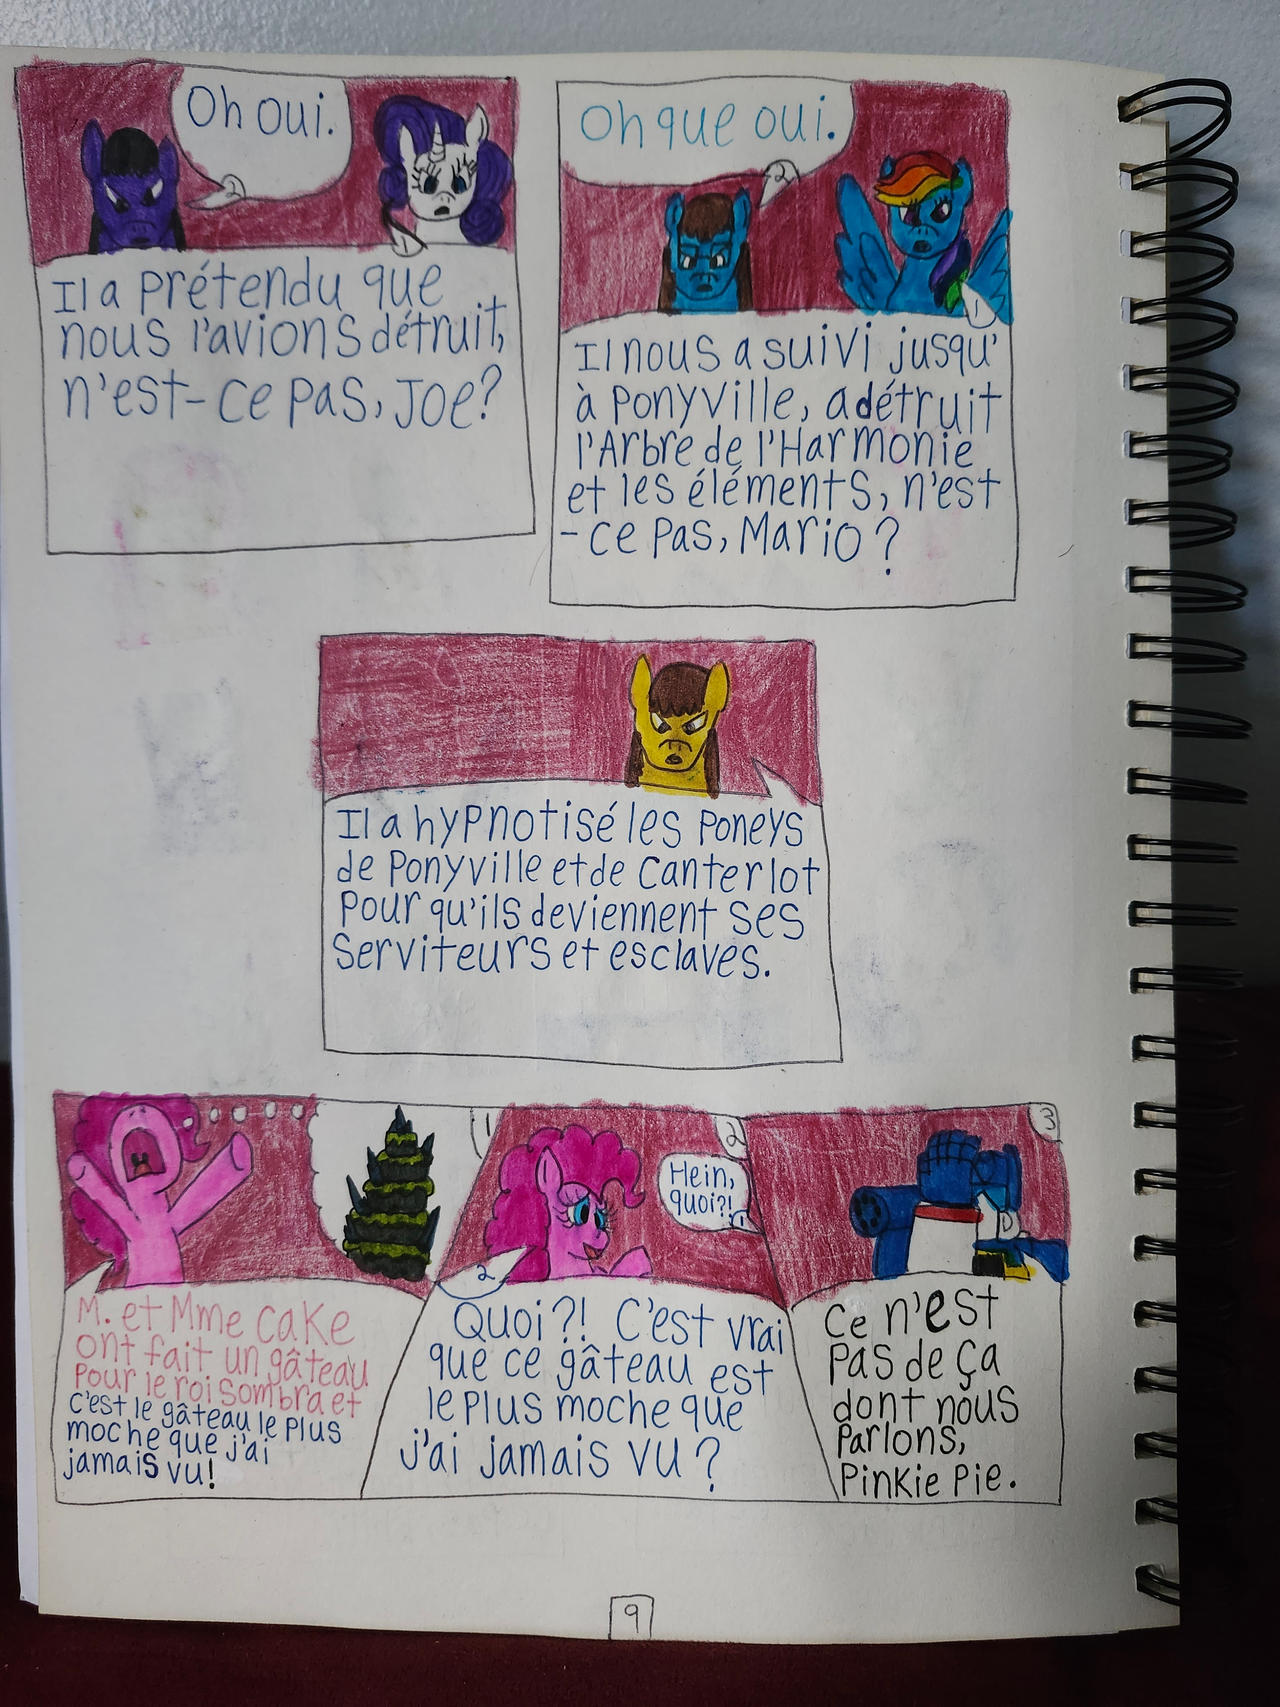 Oh oui.
2
1
Il a prétendu que
nous l'avions détruit,
n'est-ce pas, Joe?
Oh que oui.
2
1
Il nous a suivi jusqu'
à Ponyville, a détruit
l'Arbre de l'Harmonie
et les éléments, n'est
-ce pas, Mario?
Il a hypnotisé les poneys
de Ponyville et de Canterlot
pour qu'ils deviennent ses
serviteurs et esclaves.
1
M. et Mme Cake
ont fait un gâteau
pour le roi Sombra et
c'est le gâteau le plus
moche que j'ai
jamais vu!
2
Hein,
quoi?!
1
2
Quoi?! C'est vrai
que ce gâteau est
le plus moche que
j'ai jamais vu?
3
Ce n'est
pas de ça
dont nous
parlons,
Pinkie Pie.
9